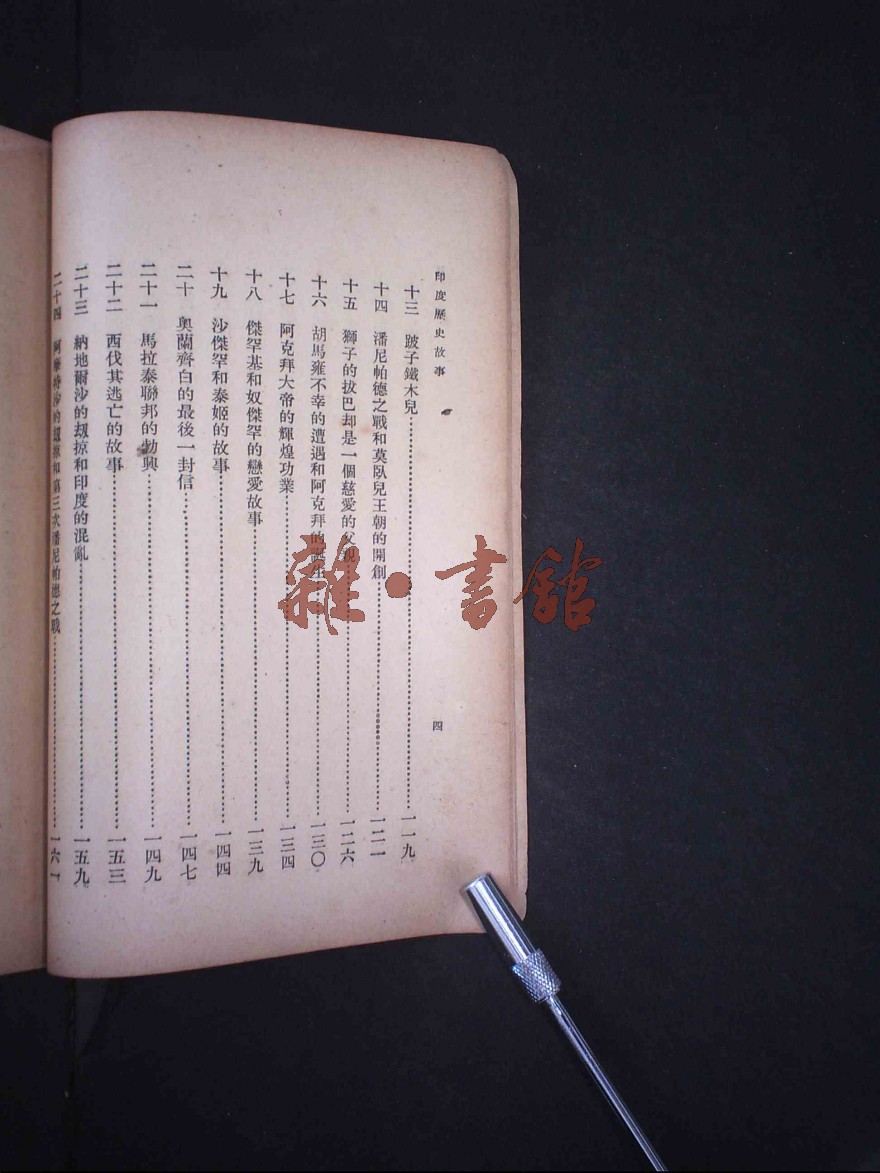 印度歷史故事
四
十三 跛子鐵木兒…………一一九
十四 潘尼帕德之戰和莫臥兒王朝的開創…………一二一
十五 獅子的拔巴却是一個慈愛的父親…………一二六
十六 胡馬雍不幸的遭遇和阿克拜的誕生…………一三〇
十七 阿克拜大帝的輝煌功業…………一三四
十八 傑罕基和奴傑罕的戀愛故事…………一三九
十九 沙傑罕和泰姬的故事…………一四四
二十 奧蘭齊白的最後一封信…………一四七
二十一 馬拉泰聯邦的勃興…………一四九
二十二 西伐其逃亡的故事…………一五三
二十三 納地爾沙的刼掠和印度的混亂…………一五九
二十四 阿 沙的刼掠和第三次潘尼帕德之戰…………一六一
雜·書館